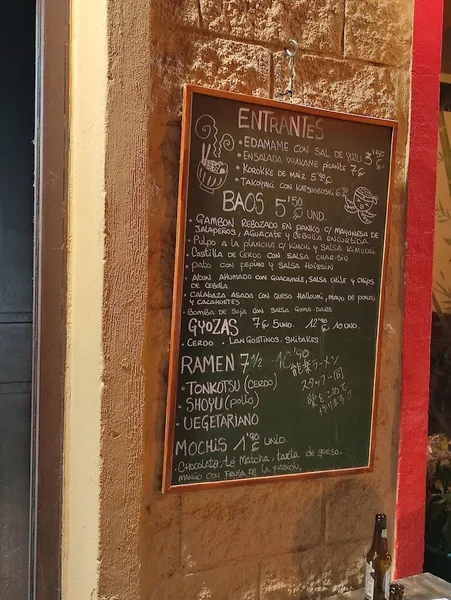 ENTRANTES
• EDAMAME CON SAL DE YUZU 3'50
• ENSALADA WAKAME picante 7€
• KOROKKE DE MAIZ 5'90€
• TAKOYAKI CON KATSUOBUSHI 6
BAOS 5'50€ UND.
• GAMBON REBOZADO EN PANKO C/ MAYONESA DE
JALAPEÑOS, AGUACATE Y CEBOLLA ENCURTIDA
• PULPO A LA PLANCHA C/ KIMCHI Y SALSA KIMUCHI
• COSTILLA DE CERDO CON SALSA CHAR-SIU
• PATO CON PEPINO Y SALSA HOISSIN
• ATUN AHUMADO CON GUACAMOLE, SALSA CHILE Y CRIPS
DE CEBOLLA
• CALABAZA ASADA CON QUESO HALLOUMI, MAYO DE
Y CACAHUETES
• BOMBA DE SOJA CON SALSA GOMA-DARE
GYOZAS 7€ 5 UND. 12'90€ 10 UND.
• CERDO . LANGOSTINOS. SHIITAKES
RAMEN 7 1/2 - 10'40
• TONKOTSU (CERDO)
• SHOYU (pollo)
• VEGETARIANO
龍楽ラーメン
スタッフ一同
MOCHIS 1'90€ UNID.
• Chocolate, té Matcha, tarta de queso,
MANGO CON FRUTA DE LA PASIÓN